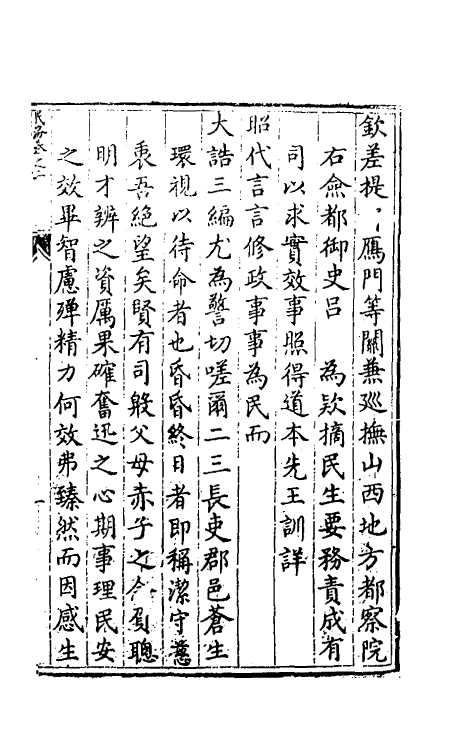 欽差提〻鴈門等關兼廵撫山西地方都察院
右僉都御史呂　為欵摘民生要務責成有
司以求實效事照得道本先王訓詳
昭代言言修政事事為民而
大誥三編尤為警切嗟爾二三長吏郡邑蒼生
環視以待命者也昏昏終日者即稱潔守蒽
衷吾絕望矣賢有司般父母赤子之念負聰
明才辨之資厲果確奮迅之心期事理民安
之效畢智慮殫精力何效弗臻然而因感生
民務卷之一
一